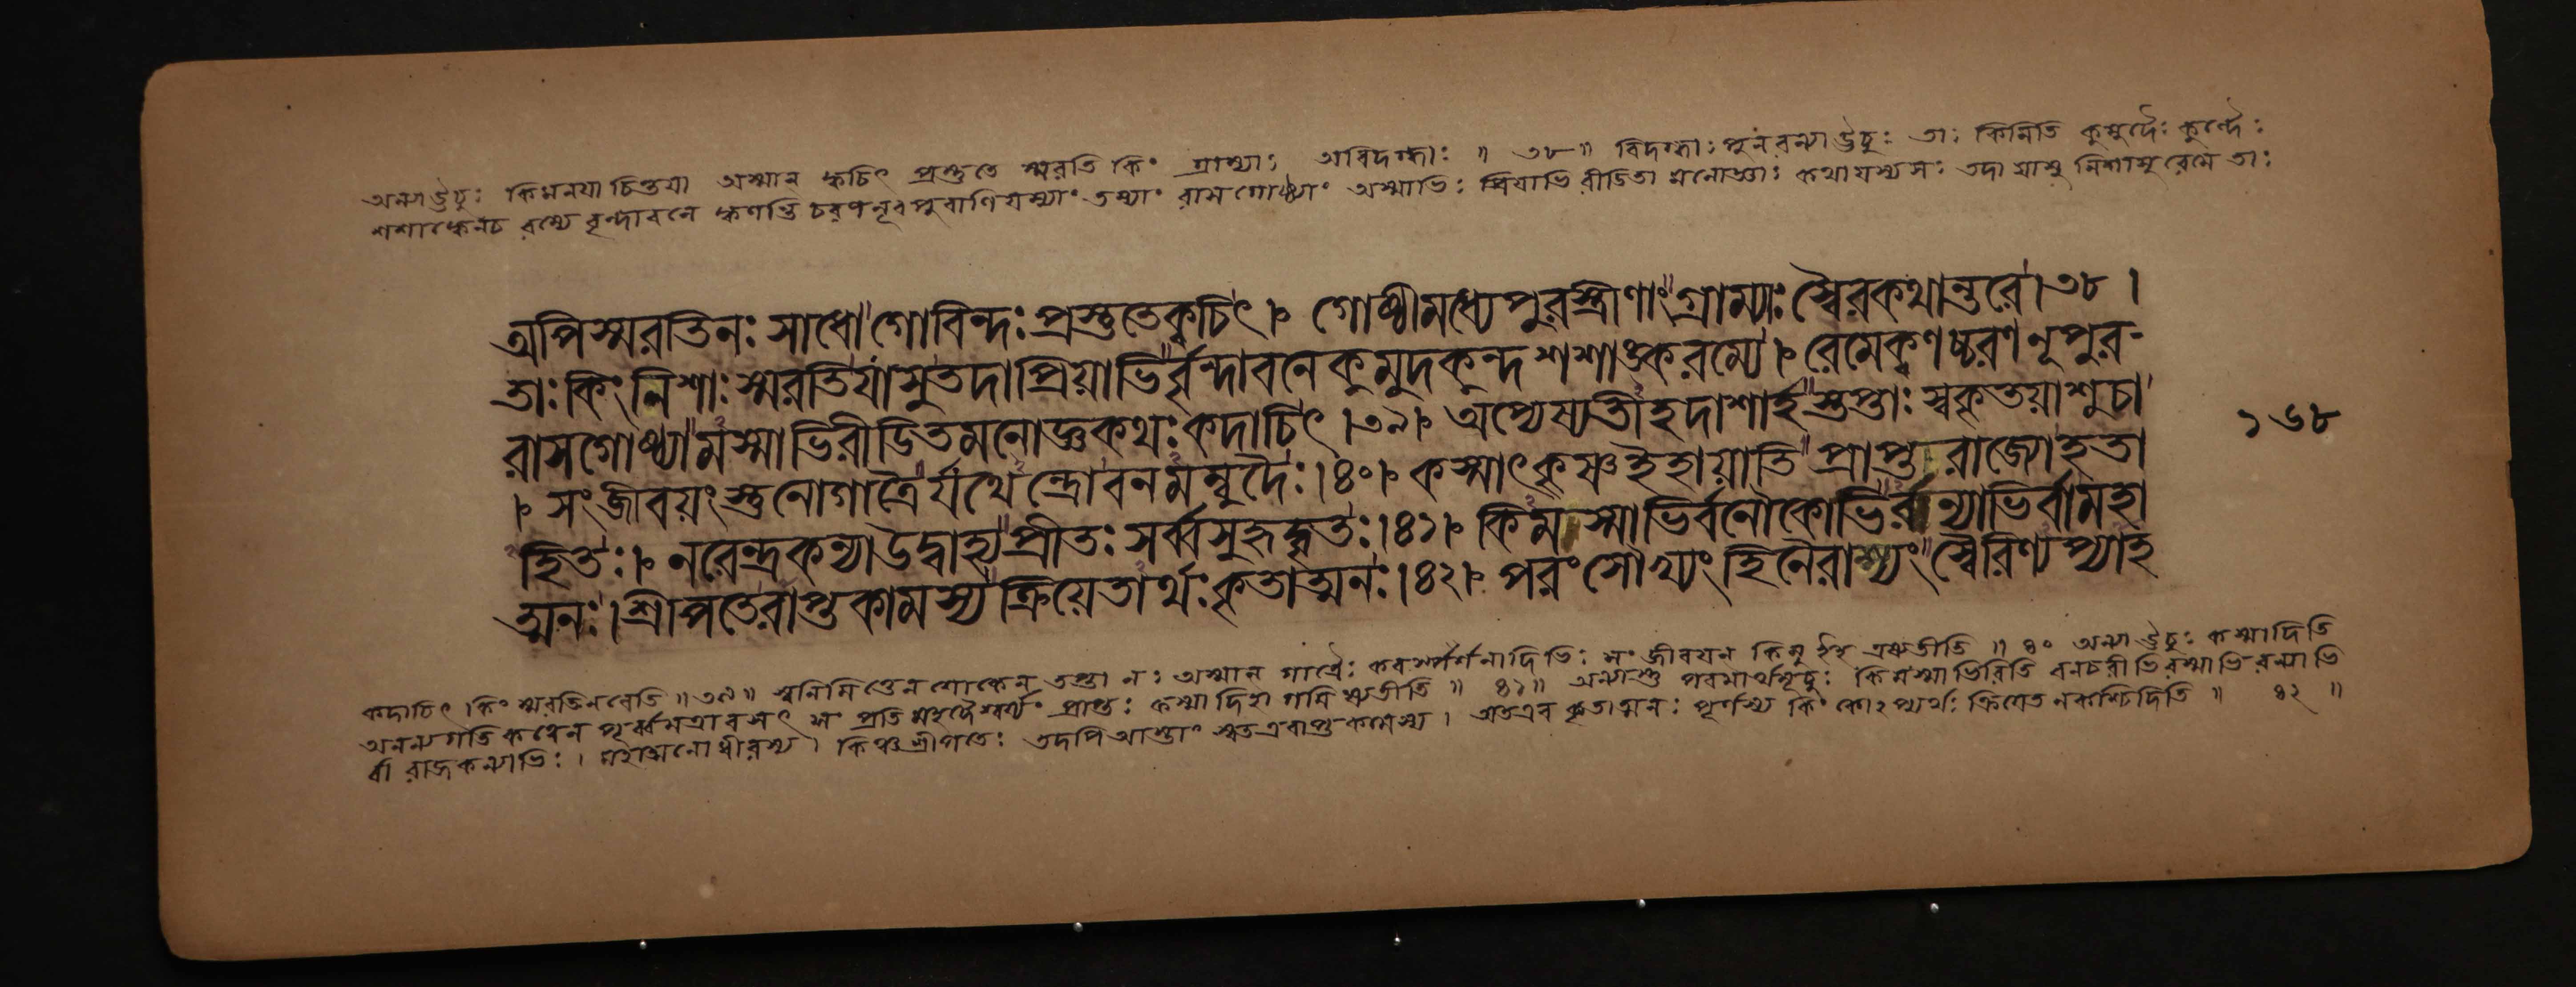 অন্যাঊচুঃ কিমনযাচিন্তযা অস্মান ক্বচিৎ প্রস্তুতে স্মরতি কিং গ্রাম্যাঃ অবিদগ্ধাঃ ॥ ৩৮॥ বিদগ্ধাঃ পুনরন্যাঊচুঃ তাঃ কিমিতি কুমুদৈঃ কুন্দৈঃ
শশাঙ্কেনচ রম্যে বৃন্দাবনে ক্বণন্তি চরণনূপুরাণি যস্যাং তস্যাং রাসগোষ্ঠ্যাং অস্মাভিঃ প্রিযাভিরীডিতা মনোজ্ঞাঃ কথাযস্য সঃ তদা যাসু নিশাসু রেমে তাঃ
অপিস্মরতিনঃ সাধো গোবিন্দঃ প্রস্তুতেক্বচিৎ। গোষ্ঠীমধ্যেপুরস্ত্রীণাং গ্রাম্যাঃ স্বৈরকথান্তরে।৩৮।
তাঃ কিং নিশাঃ স্মরতিযাসুতদাপ্রিয়াভির্বৃন্দাবনেকুমুদকুন্দশশাঙ্করম্যে। রেমেক্বণচ্চরণনূপুর-
রাসগোষ্ঠ্যামস্মাভিরীডিতমনোজ্ঞকথঃ কদাচিৎ।৩৯। অপ্যেষ্যতীহদাশার্হস্তপ্তাঃ স্বকৃতয়াশুচা
। সংজীবয়ংস্তুনোগাত্রৈর্যথেন্দ্রোবনমম্বুদৈঃ।৪০। কস্মাৎকৃষ্ণইহায়াতি প্রাপ্তরাজ্যোহতা
হিতঃ। নরেন্দ্রকন্যাউদ্বাহ্যপ্রীতঃ সর্ব্বসুহৃদ্বৃতঃ।৪১। কিমস্মাভির্বনৌকোভিরন্যাভির্বামহা
ত্মনঃ। শ্রীপতেরাপ্তকামস্যক্রিয়েতার্থঃ কৃতাত্মনঃ।৪২। পরং সৌখ্যং হিনৈরাশ্যং স্বৈরিণ্যপ্যাহ
১৬৮
কদাচিৎ কিং স্মরতিনবেতি ॥৩৯॥ স্বনিমিত্তেন শোকেন তপ্তা নঃ অস্মান গাত্রৈঃ করস্পর্শনাদিভিঃ সংজীবযন কিনু ইহ এষ্যতীতি ॥ ৪০ অন্যাঊচুঃ কস্মাদিতি
অনন্যগতিকত্বেন পূর্ব্বমত্রাবসৎ সং প্রতি মহদৈশ্বর্য্যং প্রাপ্তঃ কস্মাদিহাগমিষ্যতীতি ॥ ৪১॥ অন্যাস্তু পরমার্থমূচুঃ কিমস্মাভিরিতি বনচরীভিরস্মাভিরন্যাভি
র্বা রাজকন্যাভিঃ। মহাত্মনোধীরস্য। কিঞ্চ শ্রীপতেঃ তদপিআস্তাং স্বতএবাপ্তকামস্য। অতএব কৃতাত্মনঃ পূর্ণস্য কিং কোঽপ্যর্থঃ ক্রিযেত নকশ্চিদিতি ॥ ৪২ ॥